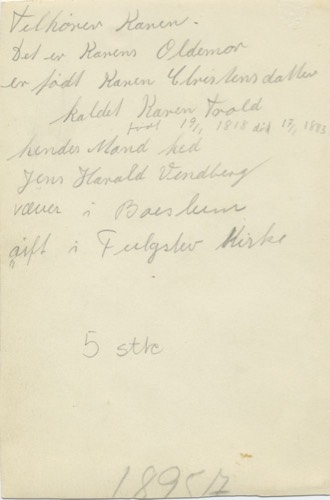 Tilhörer Karen.
Det er Karens Oldemor
er født Karen Christensdatter
kaldet Karen Trold
født 19/1 1818 død 13/1 1883
hendes Mand hed
Jens Harald Vendberg
væver i Boeslum
gift i Fuglslev Kirke
5 stk
1895